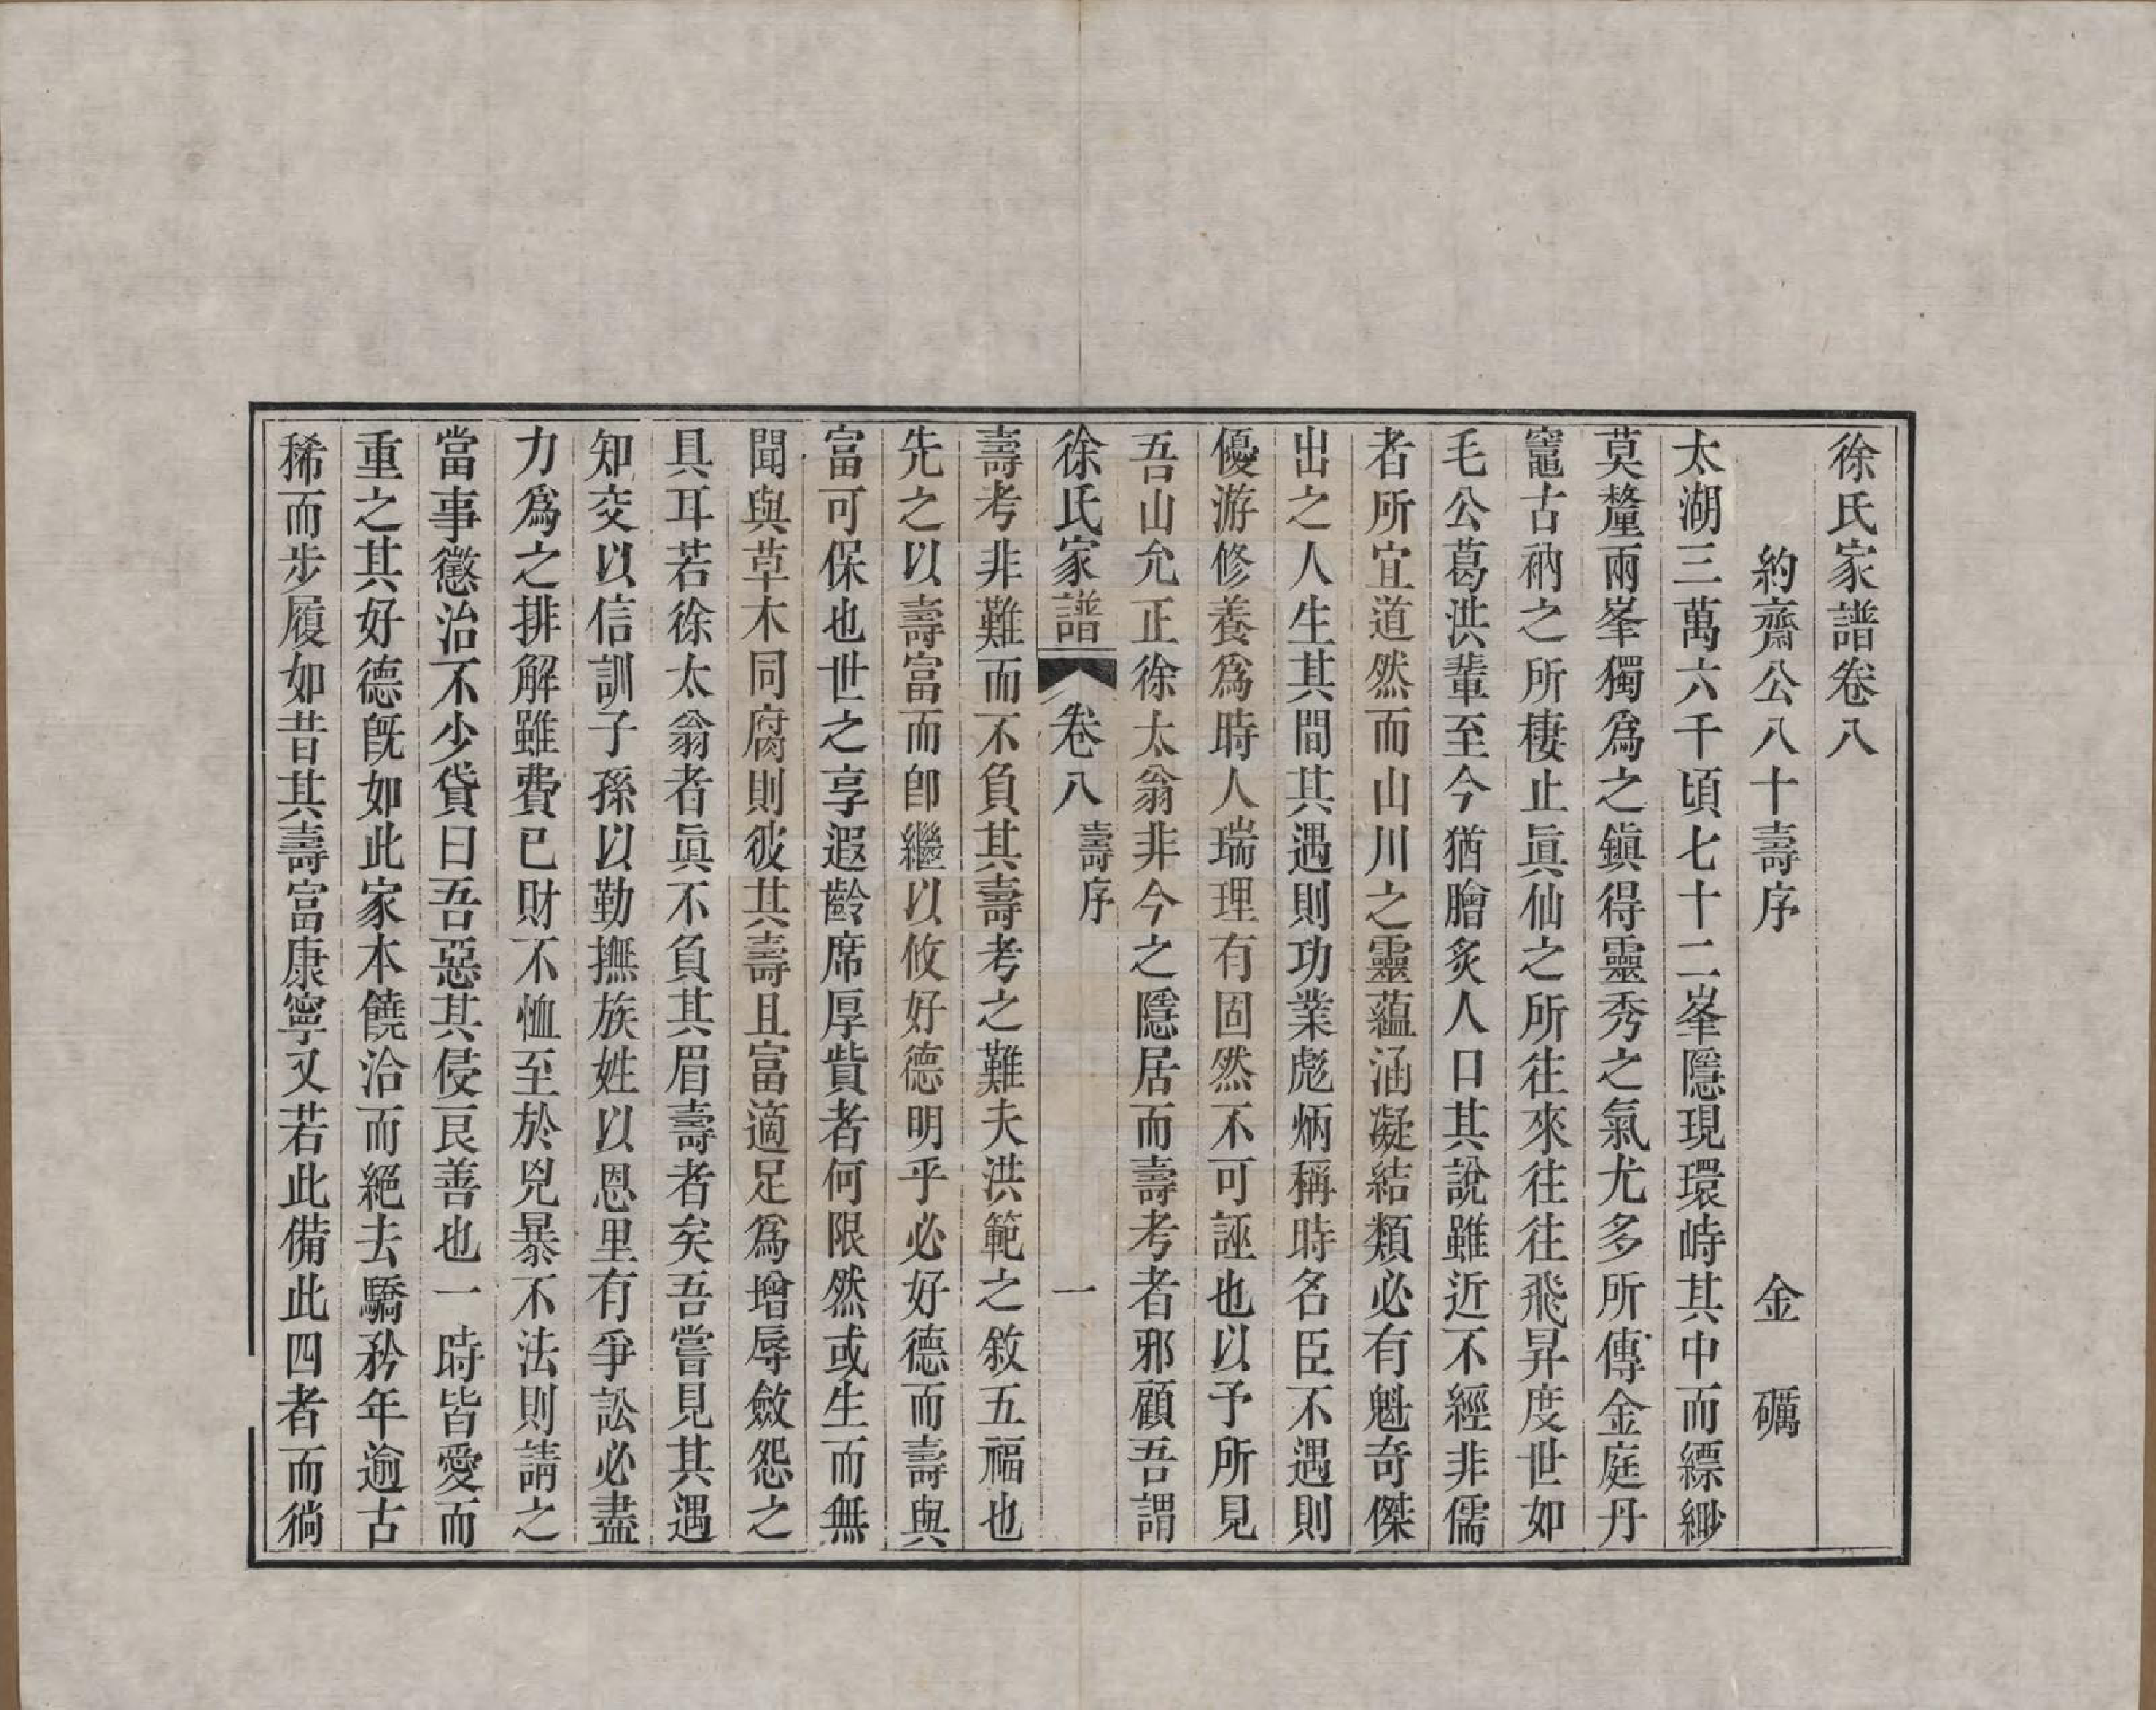 徐氏家譜卷八
約齋公八十壽序 金礪
太湖三萬六千頃七十二峯隱現環峙其中而縹緲
莫釐兩峯獨爲之鎭得靈秀之氣尤多所傳金庭丹
竈古衲之所棲止眞仙之所往來往往飛昇度世如
毛公葛洪輩至今猶膾炙人口其說雖近不經非儒
者所宜道然而山川之靈蘊涵凝結類必有魁奇傑
出之人生其間其遇則功業彪炳稱時名臣不遇則
優游修養爲時人瑞理有固然不可誣也以予所見
吾山允正徐太翁非今之隱居而壽考者邪顧吾謂
徐氏家譜 卷八 壽序 一
壽考非難而不負其壽考之難夫洪範之敘五福也
先之以壽富而卽繼以攸好德明乎必好德而壽與
富可保也世之享遐齡席厚貲者何限然或生而無
聞與草木同腐則彼其壽且富適足爲增辱斂怨之
具耳若徐太翁者眞不負其眉壽者矣吾嘗見其遇
知交以信訓子孫以勤撫族姓以恩里有爭訟必盡
力爲之排解雖費已財不恤至於兇暴不法則請之
當事懲治不少貸曰吾惡其侵良善也一時皆愛而
重之其好德旣如此家本饒洽而絕去驕矜年逾古
稀而步履如昔其壽富康寧又若此備此四者而徜